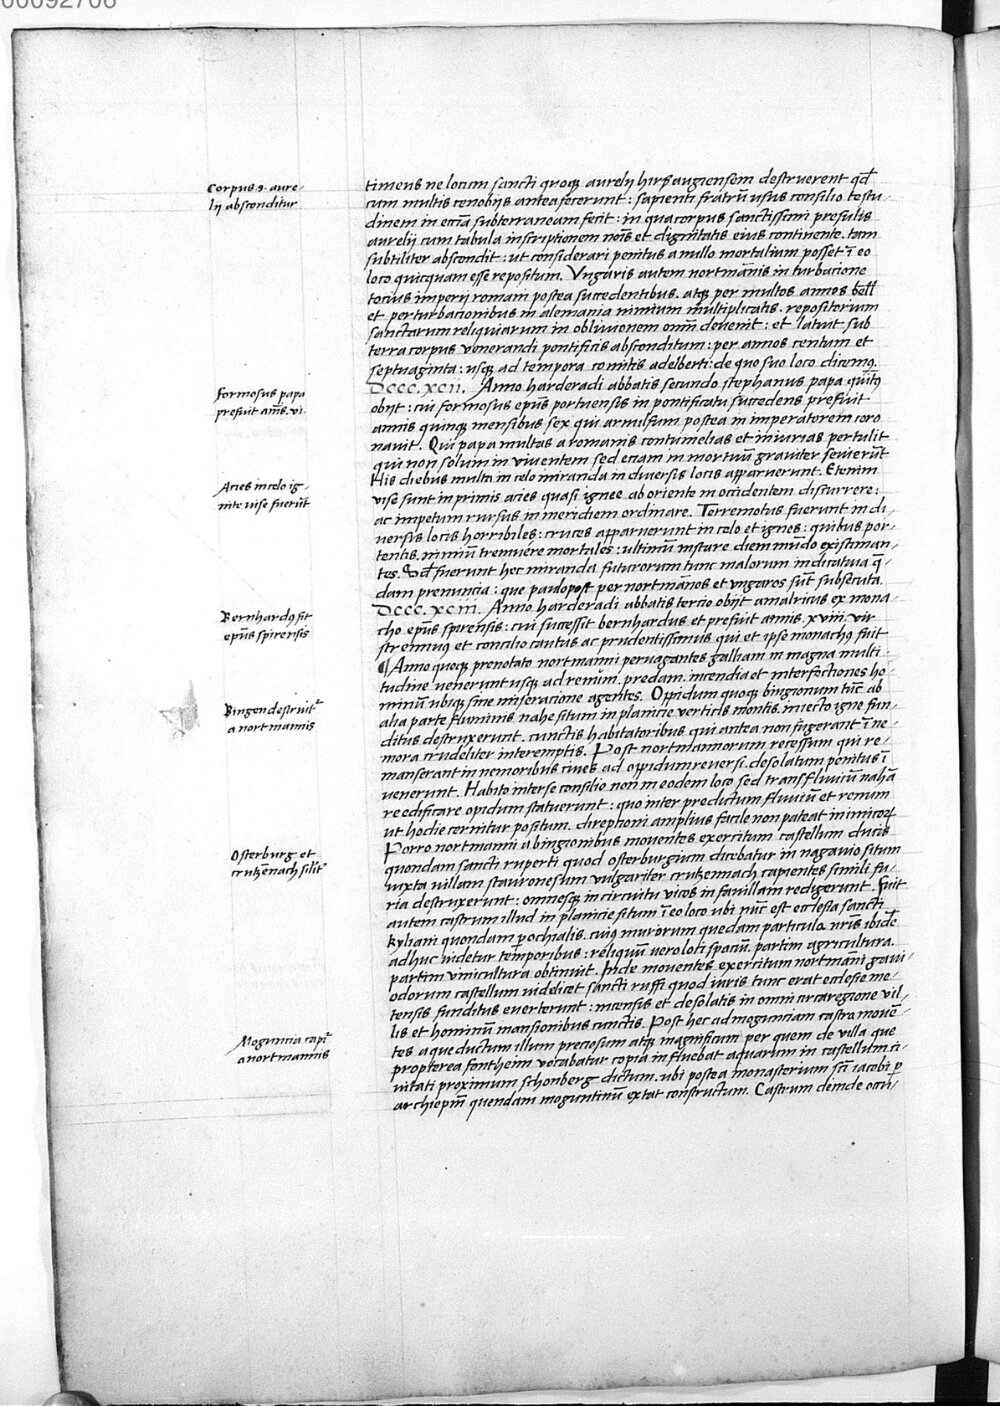 00092706
Corpus .s. aure-
lij absconditur
timens ne locum sancti quoq; aurelij hirsaugiensem destruerent qđ
cum multis cenobijs antea fecerunt: sapienti fratrū usus consilio testu-
dinem in eccīa subterraneam fecit: in qua corpus sanctissimi presulis
aurelij cum tabula inscriptionem noīs et dignitatis eius continente. tam
subtiliter abscondit: ut considerari penitus a nullo mortalium posset ī eo
loco quicquam esse repositum. Vngaris autem nortmānis in turbacione
tocius imperij romani postea succedentibus. atq; per multos annos bell
et perturbacionibus in alemania nimium multiplicatis. repositorium
sanctarum reliquiarum in obliuionem omm̄ deuenit: et latuit sub
terra corpus venerandi pontificis absconditum: per annos centum et
septuaginta: usq; ad tempora comitis adelberti: de quo suo loco dicemꝰ.
Formosus papa
prefuit an̄is .vi.
DCCC.XCII. Anno harderadi abbatis secundo stephanus papa quītꝰ
obijt: cui formosus ep̄us portuensis in pontificatu succedens prefuit
annis quinq; mensibus sex qui arnulfum postea in imperatorem coro
nauit. Qui papa multas a romanis contumelias et iniurias pertulit
qui non solum in viuentem sed eciam in mortuū grauiter seuierūt
Acies in celo ig-
nite vise fuerūt
His diebus multa in celo miranda in diuersis locis apparuerunt. Etenim
vise sunt in primis acies quasi ignee ab oriente in occidentem discurrere:
ac impetum rursus in meridiem ordinare. Terremotus fuerunt in di-
uersis locis horribiles: cruces apparuerunt in celo et ignes: quibus por-
tentis nimiū tremuere mortales: ultimū instare diem mūdo existiman-
tes. Sed fuerunt hec miranda futurorum tunc malorum indicatiua q̄-
dam prenuncia: que paulopost per nortmānos et vngaros sūt subsecuta.
Bernhardꝰ fit
ep̄us spirensis
DCCC.XCIII. Anno harderadi abbatis tercio obijt amalricus ex mona-
cho ep̄us spirensis: cui successit bernhardus et prefuit annis .xviii. vir
strennuꝰ et concilio cautus ac prudentissimus qui et ipse monachꝰ fuit
¶ Anno quoq; prenotato nortmanni peruagantes galliam in magna multi-
tudine venerunt usq; ad renum. predam. incendia et interfectiones ho-
minū ubiq; sine miseracione agentes. Oppidum quoq; bingionum tūc ab
Bingen destruitᵘʳ
a nortmannis
alia parte fluminis nahe situm in planicie verticis montis. iniecto igne fun-
ditus destruxerunt. cunctis habitatoribus qui antea non fugerant ī ne-
mora crudeliter interemptis. Post nortmannorum recessum qui re-
manserant in nemoribus ciues ad oppidum reuersi. desolatum penitus ī
venerunt. Habito inter se consilio non in eodem loco sed trans fluuiū nahā
reedificare opidum statuerunt: quo inter predictum fluuiū et renum
ut hodie cernitur positum. direptioni amplius facile non pateat inimicoꝝ
Osterburg et
crutzenach sil̄it
Porro nortmanni a bingionibus mouentes exercitum castellum ducis
quondam sancti ruperti quod osterburgium dicebatur in nagauio situm
iuxta villam stauronesum vulgariter crutzennach capientes simili fu-
ria destruxerunt: omnesq; in circuitu vicos in fauillam redigerunt. Fuit
autem castrum illud in planicie situm ī eo loco ubi nūc est ecclesia sancti
kyliani quondam ꝑochialis. cuiꝰ murorum quedam particula. nr̄is ibidē
adhuc uidetur temporibus: reliquū vero loci spaciū. partim agricultura.
partim vinicultura obtinuit. Inde mouentes exercitum nortmāni gaui-
odorum castellum uidelicet sancti ruffi quod iuris tunc erat ecclesie me-
tensis funditus euerterunt: incensis et desolatis in omni circa regione vil-
lis et hominū mansionibus cunctis. Post hec ad mogunciam castra mouē-
Moguncia capiᵗ
a nortmannis
tes aqueductum illum preciosum atq; magnificum per quem de villa que
propterea fontheim vocabatur copia influebat aquarum in castellum ci-
uitati proximum schonberg dictum. ubi postea monasterium scī iacobi ꝑ
archiep̄m quendam moguntinū extat constructum. Castrum deinde occu-